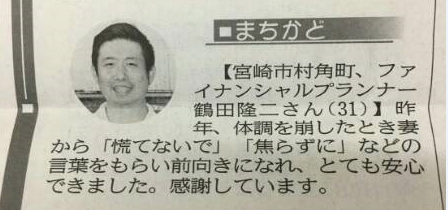 ■まちかど
【宮崎市村角町、ファ
イナンシャルプランナー
鶴田隆二さん(31)】昨
年、体調を崩したとき妻
から「慌てないで」「焦らずに」などの
言葉をもらい前向きになれ、とても安心
できました。感謝しています。